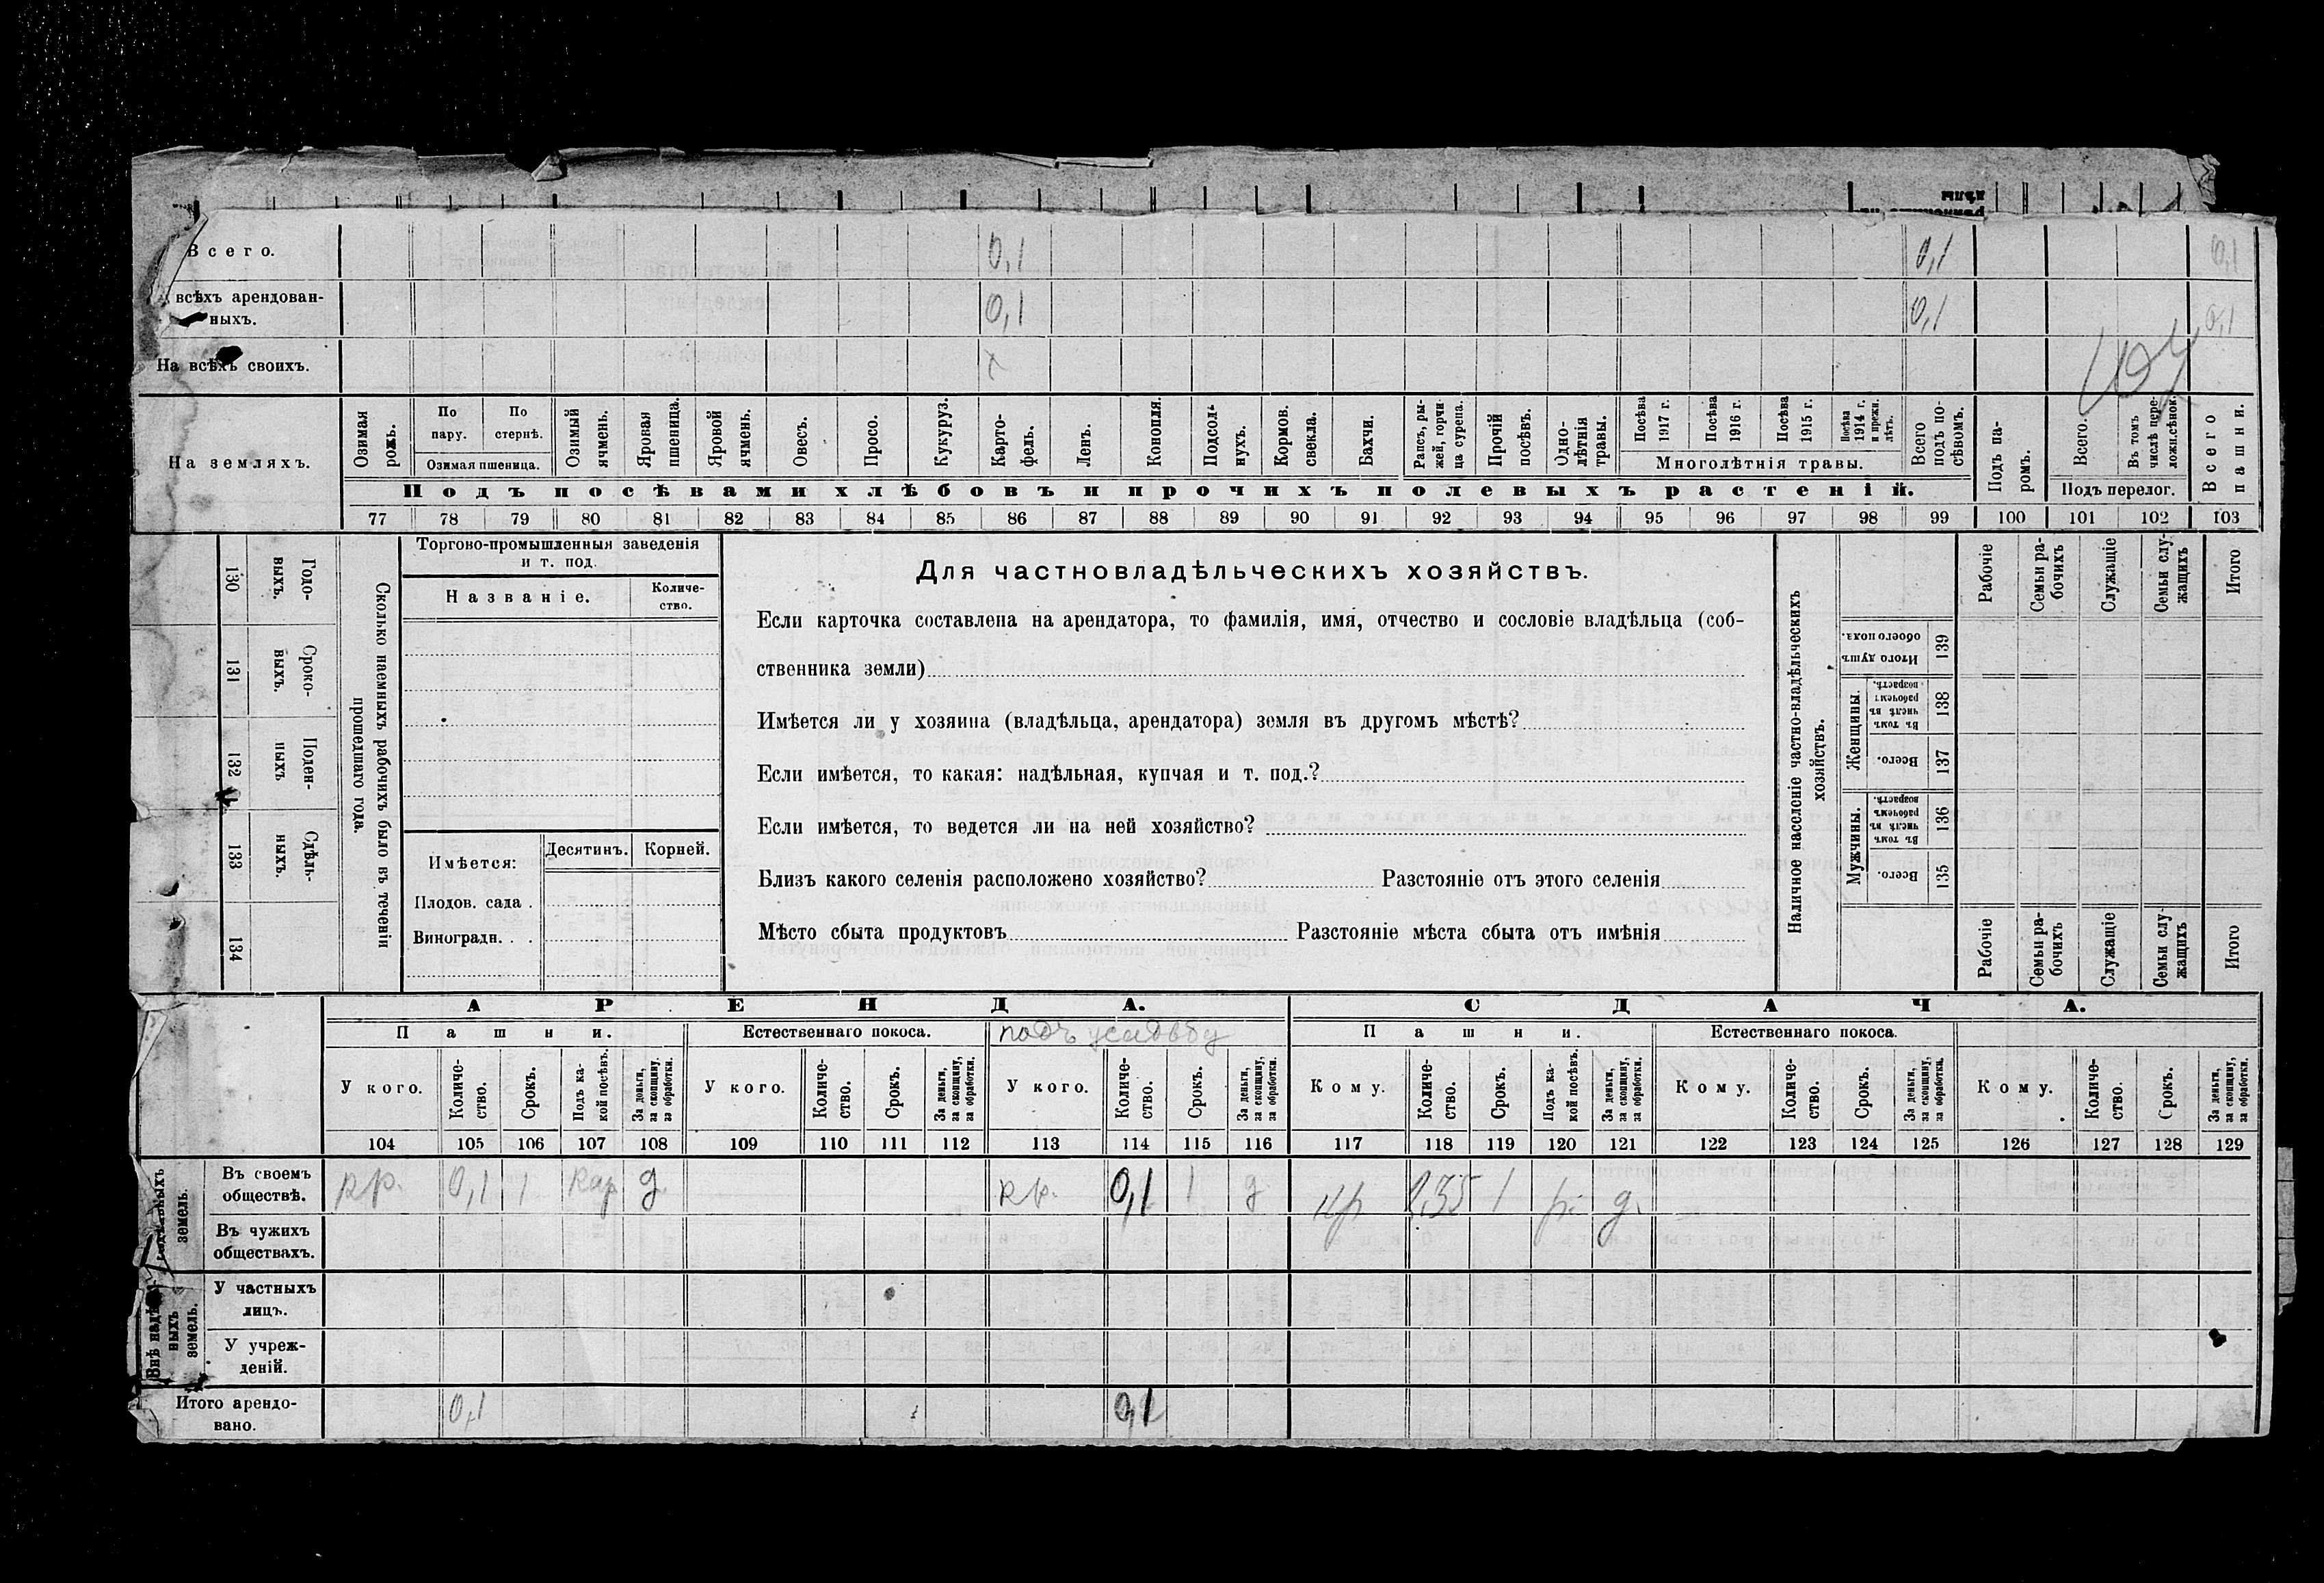 Всего. 0,1 0,1 0,1
всѣхъ арендован-
ныхъ. 0,1 0,1 0,1
На всѣхъ своихъ. х
На земляхъ.
Озимая рожь.
По пару.
По стернѣ.
Озимая пшеница.
Озимый ячмень.
Яровая пшеница.
Яровой ячмень.
Овесъ.
Просо.
Кукуруз.
Карто-
фель.
Ленъ.
Конопля.
Подсол-
нухъ.
Кормов.
свекла.
Бахчи.
Рапсъ, ры-
жей, горчи
ца сурепа.
Прочій
посѣвъ.
Одно-
лѣтнія
травы.
Посѣва
1917 г.
Посѣва
1916 г.
Посѣва
1915 г.
Посѣва
1914 г.
и прежн.
лѣтъ.
Многолѣтнія травы.
Всего
подъ по-
сѣвомъ.
Подъ па-
ромъ.
Всего.
Въ томъ
числѣ пере-
ложн.сѣнок.
Подъ перелог.
Всего
пашни.
Подъ посѣвами хлѣбовъ и прочихъ полевыхъ растеній.
77 78 79 80 81 82 83 84 85 86 87 88 89 90 91 92 93 94 95 96 97 98 99 100 101 102 103
130 Годо-
выхъ.
131 Сроко-
выхъ.
132 Поден-
ныхъ
133 Сдѣль-
ныхъ.
134
Сколько наемныхъ рабочихъ было въ теченіи
прошедшаго года.
Торгово-промышленныя заведенія
и т. под.
Названіе.
Количе-
ство.
Имѣется:
Десятинъ.
Корней.
Плодов. сада .
Виноградн. . .
Для частновладѣльческихъ хозяйствъ.
Если карточка составлена на арендатора, то фамилія, имя, отчество и сословіе владѣльца (соб-
ственника земли)
Имѣется ли у хозяина (владѣльца, арендатора) земля въ другомъ мѣстѣ?
Если имѣется, то какая: надѣльная, купчая и т. под.?
Если имѣется, то ведется ли на ней хозяйство?
Близъ какого селенія расположено хозяйство? Разстояніе отъ этого селенія
Мѣсто сбыта продуктовъ Разстояніе мѣста сбыта отъ имѣнія
Наличное населеніе частно-владѣльческихъ
хозяйствъ.
Рабочіе
Семьи ра-
бочихъ
Служащіе
Семьи слу-
жащихъ
Итого
Итого душъ
обоего пола.
139
Женщины.
Въ томъ
числѣ въ
рабочемъ
возрастѣ.
138
Всего.
137
Мужчины.
Въ томъ
числѣ въ
рабочемъ
возрастѣ.
136
Всего.
135
Рабочіе
Семьи ра-
бочихъ
Служащіе
Семьи слу-
жащихъ
Итого
АРЕНДА. СДАЧА.
Пашни. Естественнаго покоса. подъ усадьбу Пашни. Естественнаго покоса.
У кого.
Количе-
ство.
Срокъ.
Подъ ка-
кой посѣвъ.
За деньги,
за скопщину,
за обработки.
У кого.
Количе-
ство.
Срокъ.
За деньги,
за скопщину,
за обработки.
У кого.
Количе-
ство.
Срокъ.
За деньги,
за скопщину,
за обработки.
Кому.
Количе-
ство.
Срокъ.
Подъ ка-
кой посѣвъ.
За деньги,
за скопщину,
за обработки.
Кому.
Количе-
ство.
Срокъ.
За деньги,
за скопщину,
за обработки.
Кому.
Количе-
ство.
Срокъ.
За деньги,
за скопщину,
за обработки.
104 105 106 107 108 109 110 111 112 113 114 115 116 117 118 119 120 121 122 123 124 125 126 127 128 129
надѣльныхъ
земель.
Въ своемъ
обществѣ. кр. 0,1 1 кар д. кр. 0,1 1 д кр 1 р. д.
Въ чужихъ
обществахъ.
Внѣ надѣль-
ныхъ
земель.
У частныхъ
лицъ.
У учреж-
деній.
Итого арендо-
вано. 0,1 0,1